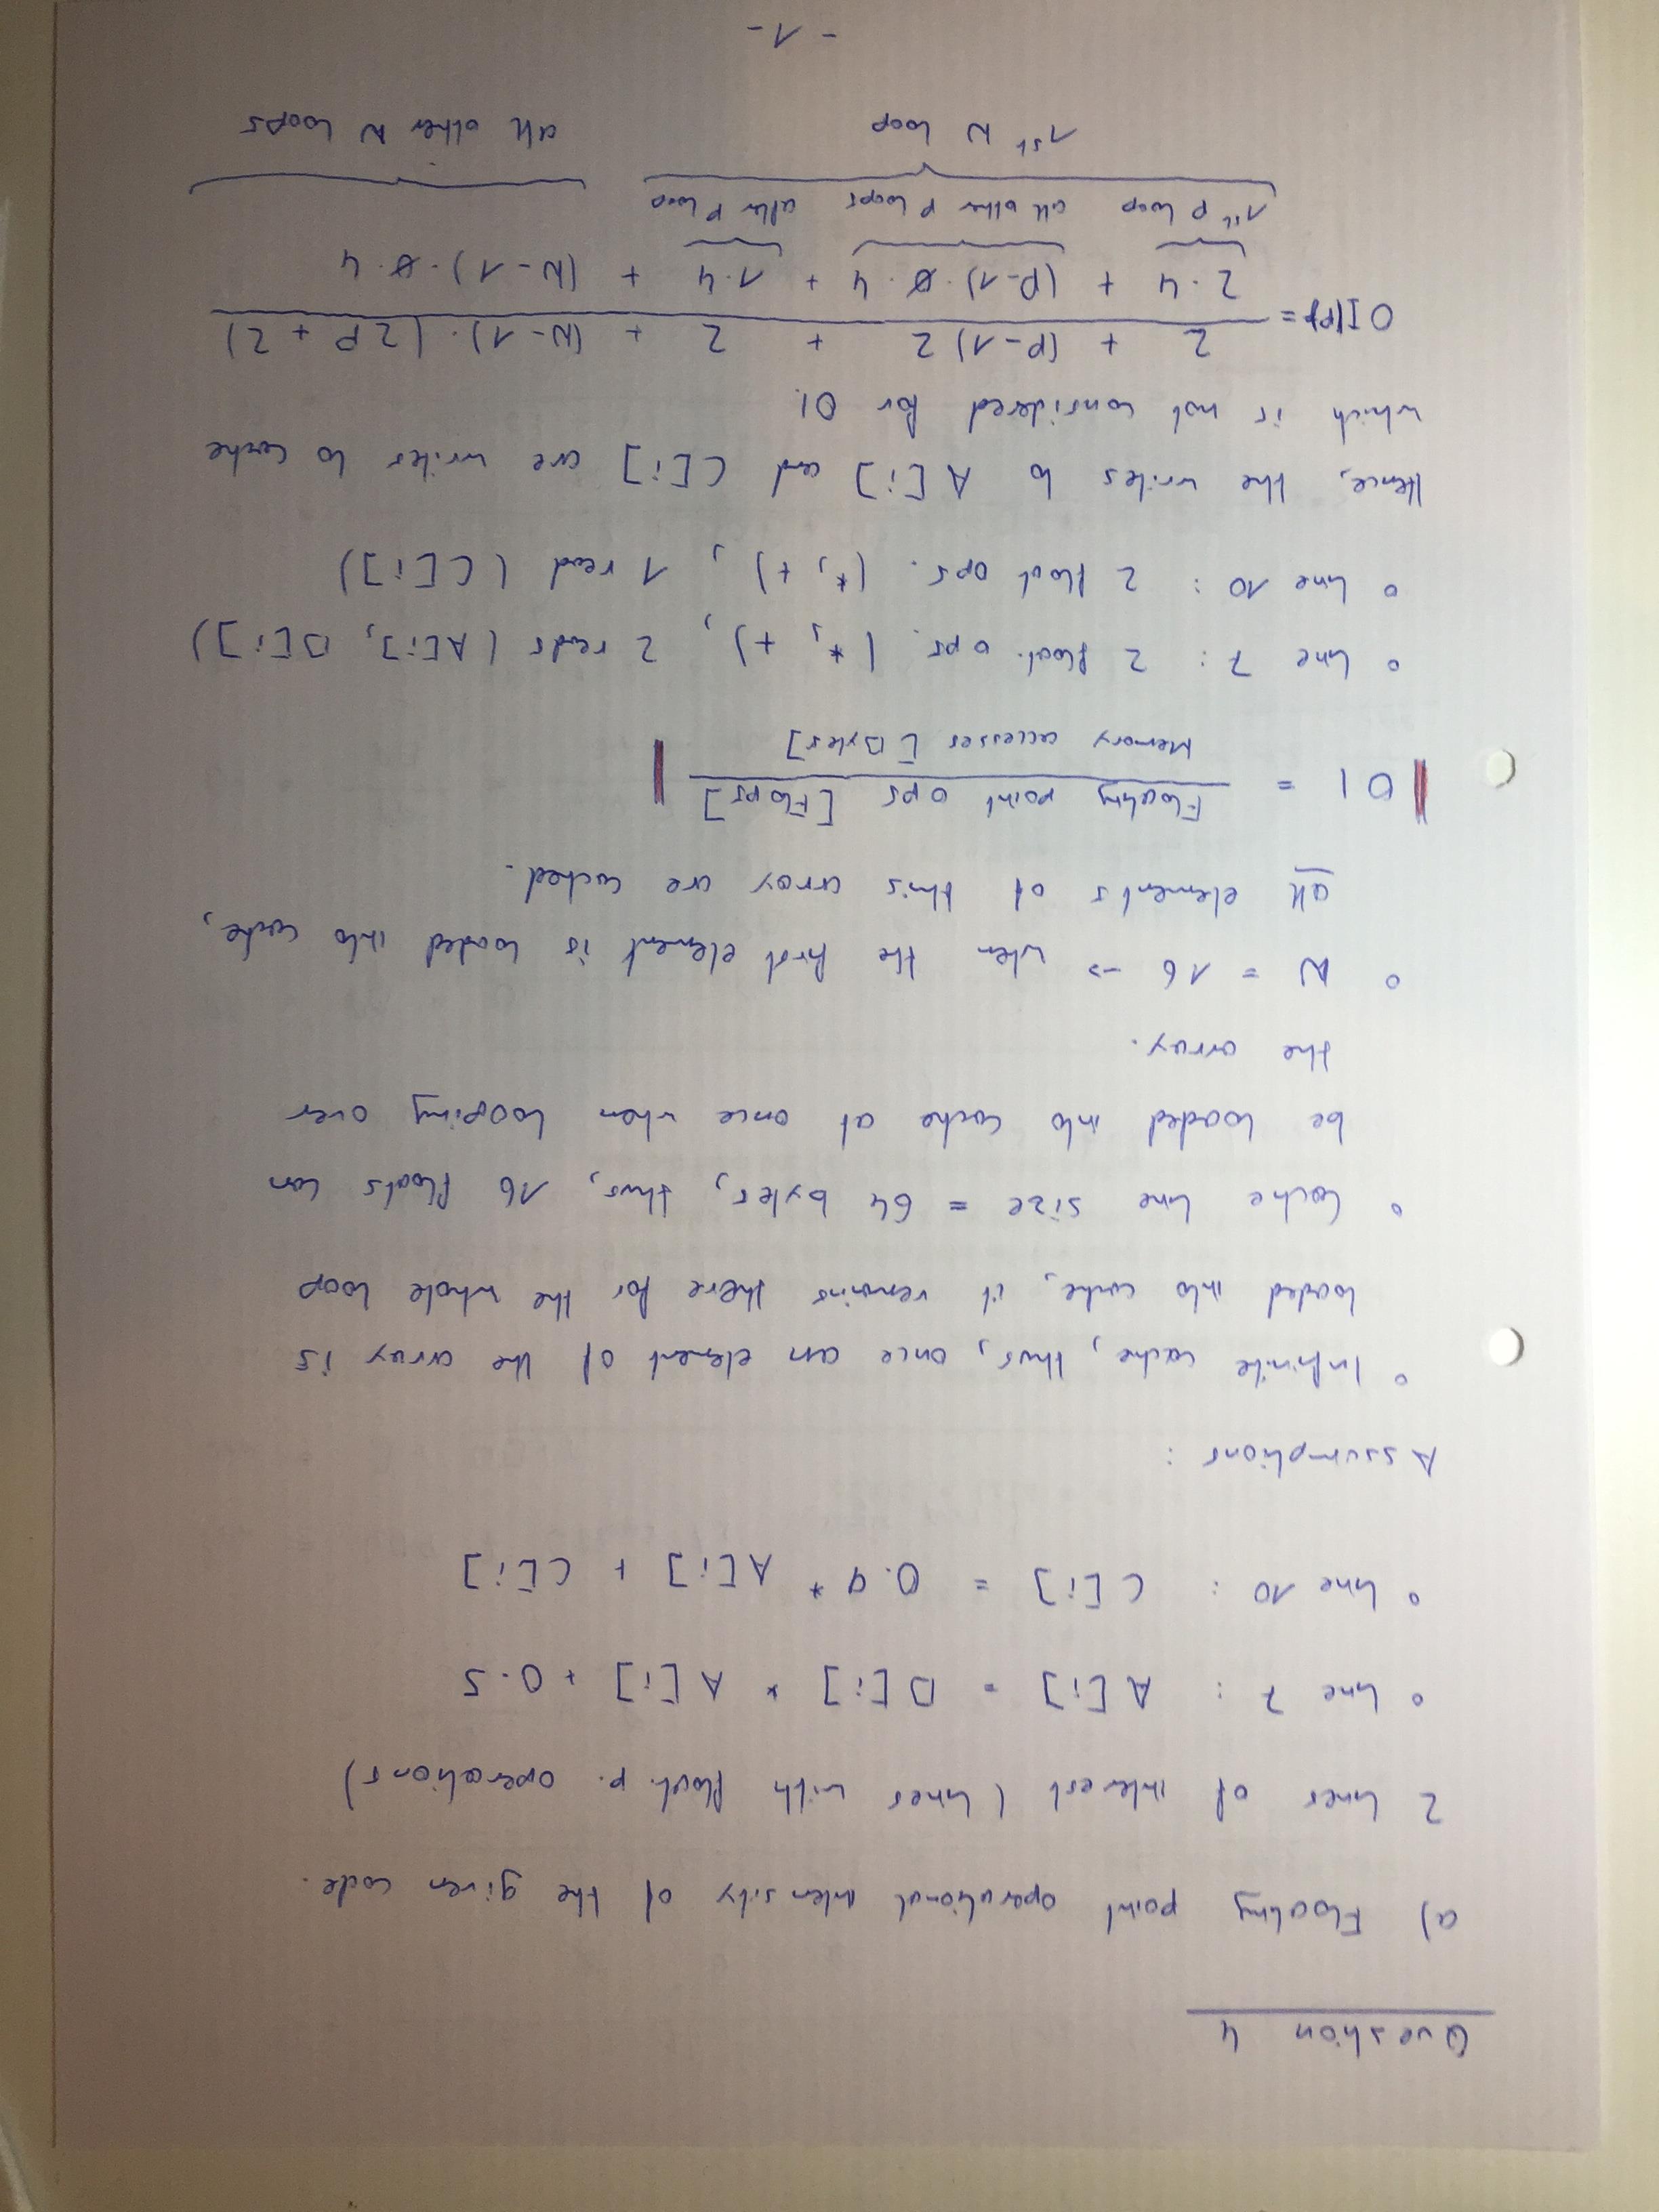 Question 4
a) Floating point operational intensity of the given code.
2 lines of interest (lines with float. p. operations)
° line 7 : A[i] = B[i] * A[i] + 0.5
° line 10 : C[i] = 0.9 * A[i] + C[i]
Assumptions :
° Infinite cache, thus, once an element of the array is
loaded into cache, it remains there for the whole loop
° Cache line size = 64 bytes, thus, 16 floats can
be loaded into cache at once when looping over
the array.
° N = 16 -> when the first element is loaded into cache,
all elements of this array are cached.
OI = Floating point ops [Flops]
Memory accesses [Bytes]
° line 7 : 2 float. ops. (*, +), 2 reads (A[i], B[i])
° line 10 : 2 float ops. (*, +), 1 read (C[i])
Hence, the writes to A[i] and C[i] are writes to cache
which is not considered for OI.
OI(P) = 2 + (P-1) 2 + 2 + (N-1) · (2P + 2)
2·4 + (P-1)·0·4 + 1·4 + (N-1)·0·4
1st P loop all other P loops after P loop
1st N loop all other N loops
- 1 -